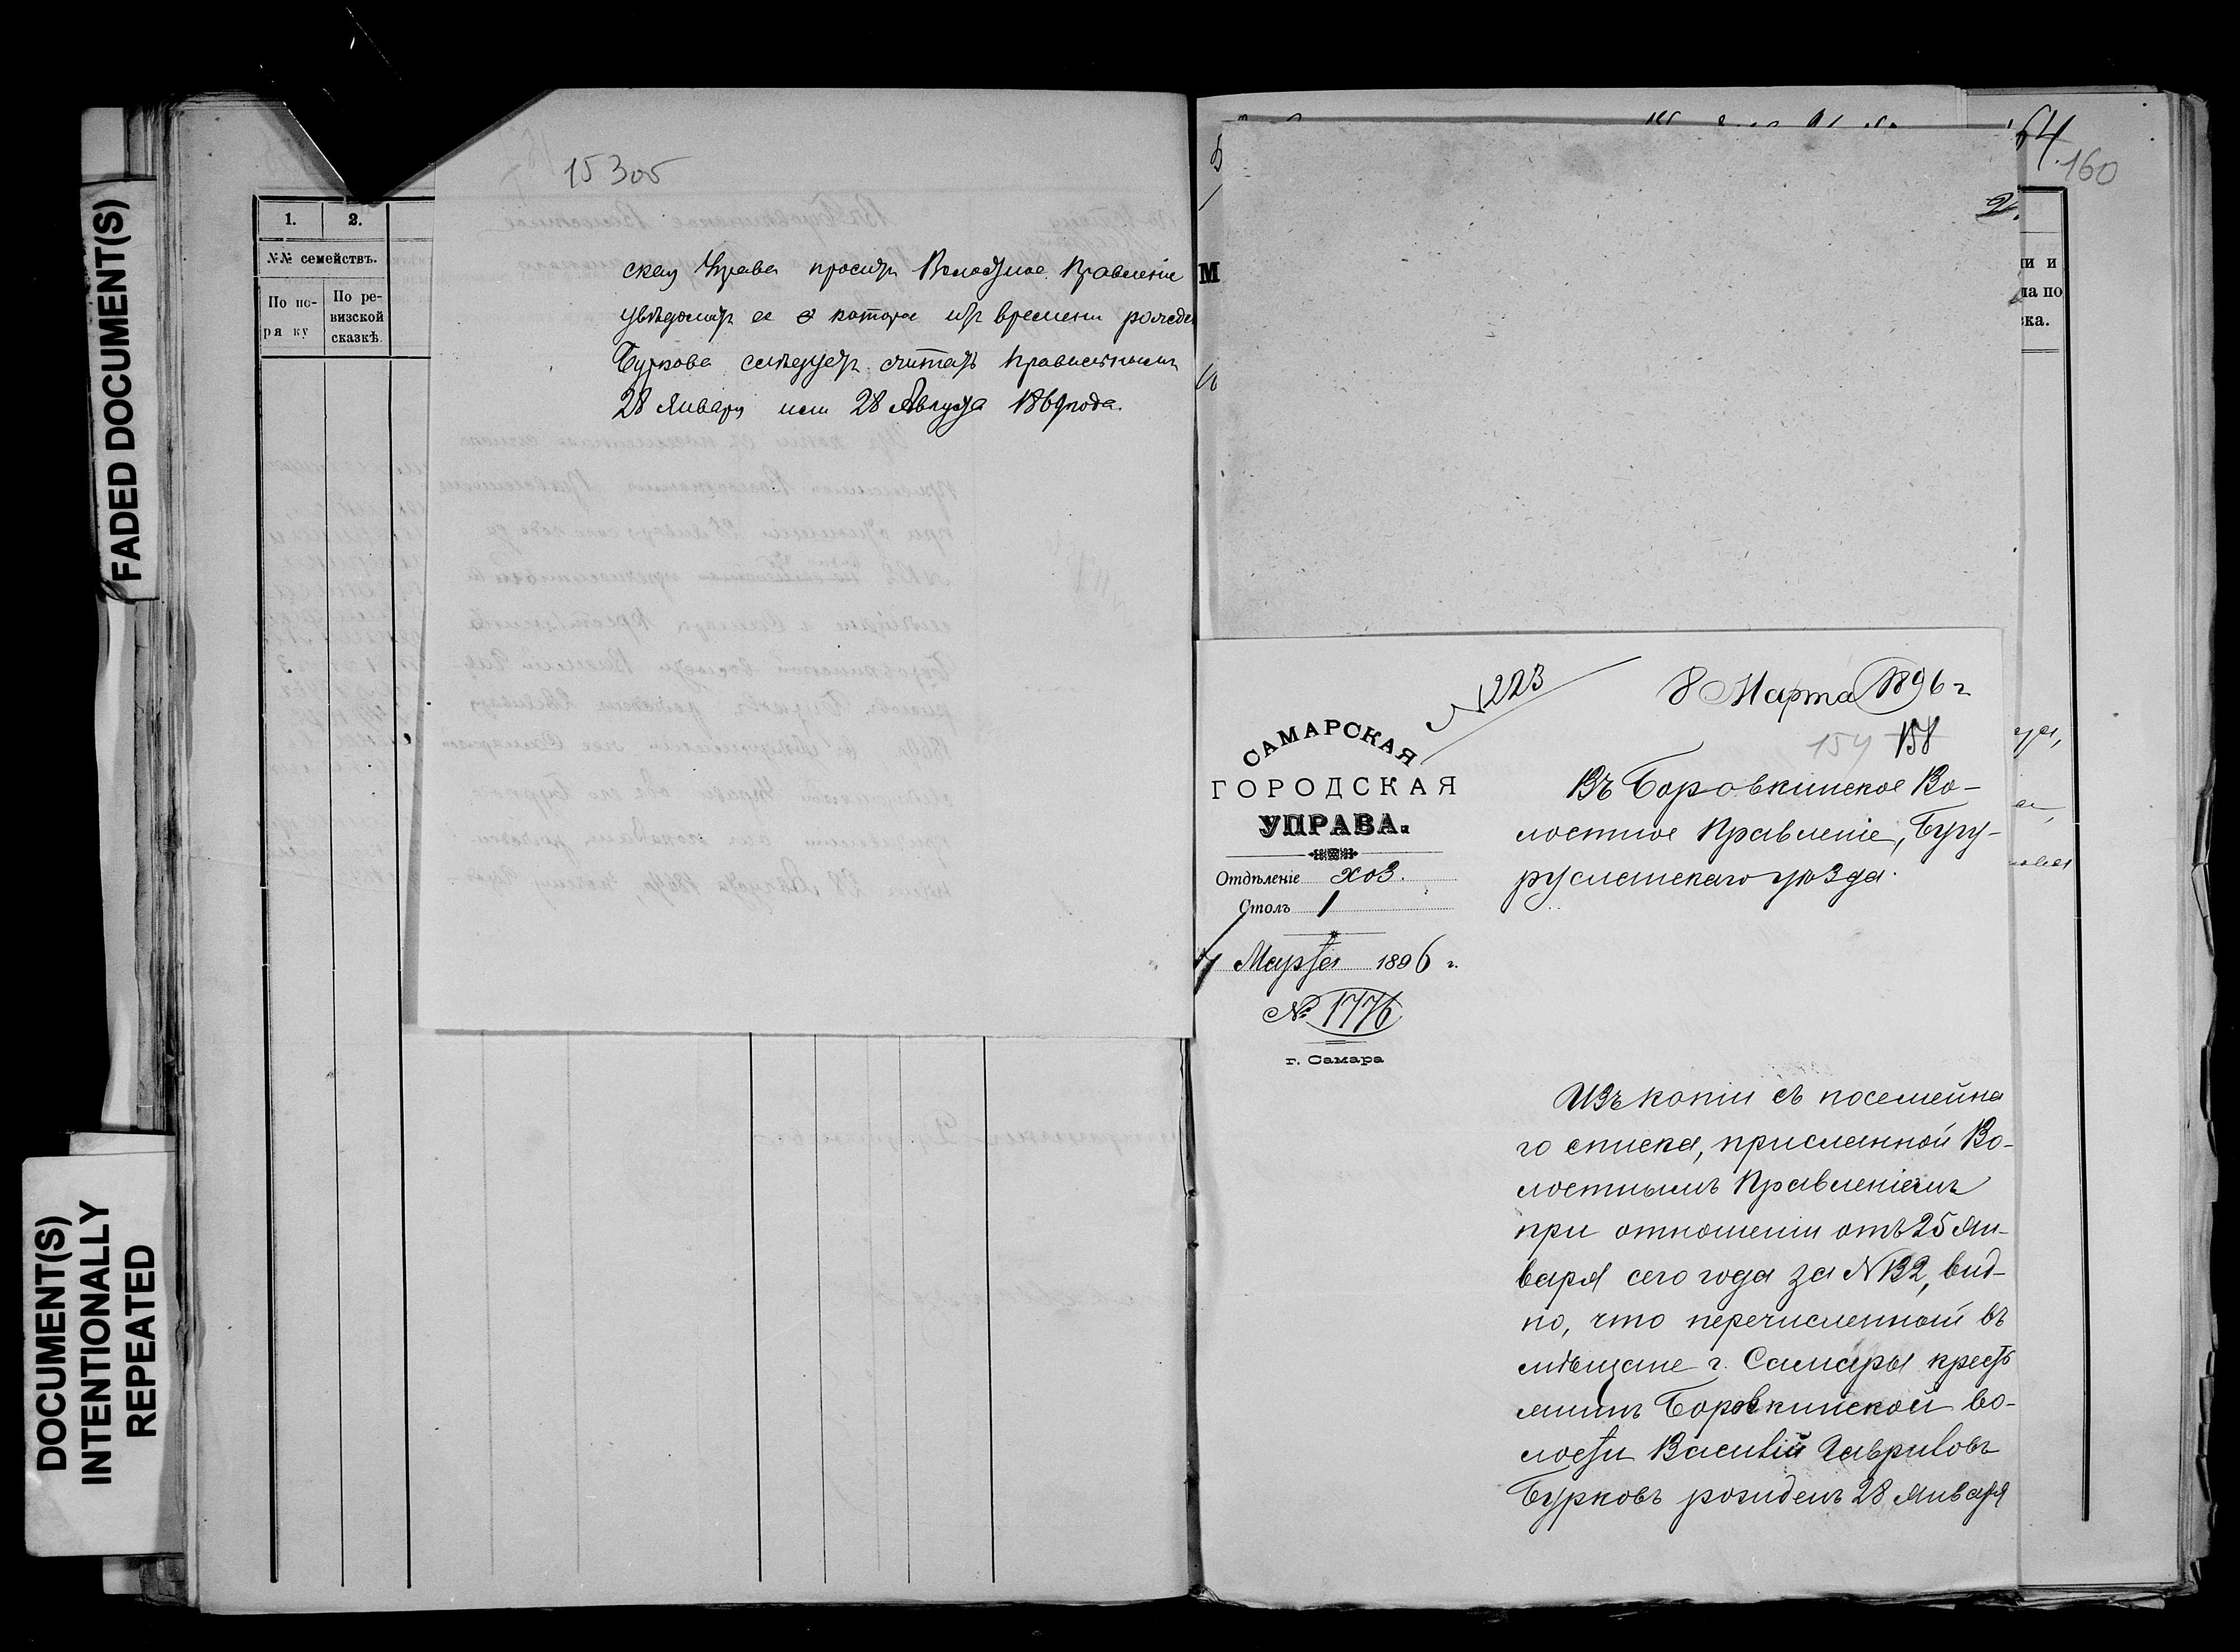 FADED DOCUMENT(S)
DOCUMENT(S)
INTENTIONALLY
REPEATED
1. 2.
№№ семействъ.
По по-
ря ку
По ре-
визской
сказкѣ.
15305
ская Управа проситъ Волостное Правленіе
увѣдомить ее о которое изъ времени рожде
Буркова слѣдуетъ считать правильнымъ
28 Января или 28 Августа 1869 года.
М
64
160
2.
и и
ла по
ка.
№ 223
8 Марта 1896 г
154 158
САМАРСКАЯ
ГОРОДСКАЯ
УПРАВА.
Отдѣленіе хоз.
Столъ 1
Марта 1896 г.
№ 1776
г. Самара
Въ Боровкинское Во-
лостное Правленіе, Бугу-
русланскаго уѣзда.
Изъ копіи съ посемейна
го списка, присланной Во-
лостнымъ Правленіемъ
при отношеніи отъ 25 Ян-
варя сего года за № 132, вид-
но, что перечисленный въ
мѣщане г. Самары кресть
янинъ Боровкинской во-
лости Василій Гавриловъ
Бурковъ рожденъ 28 Января